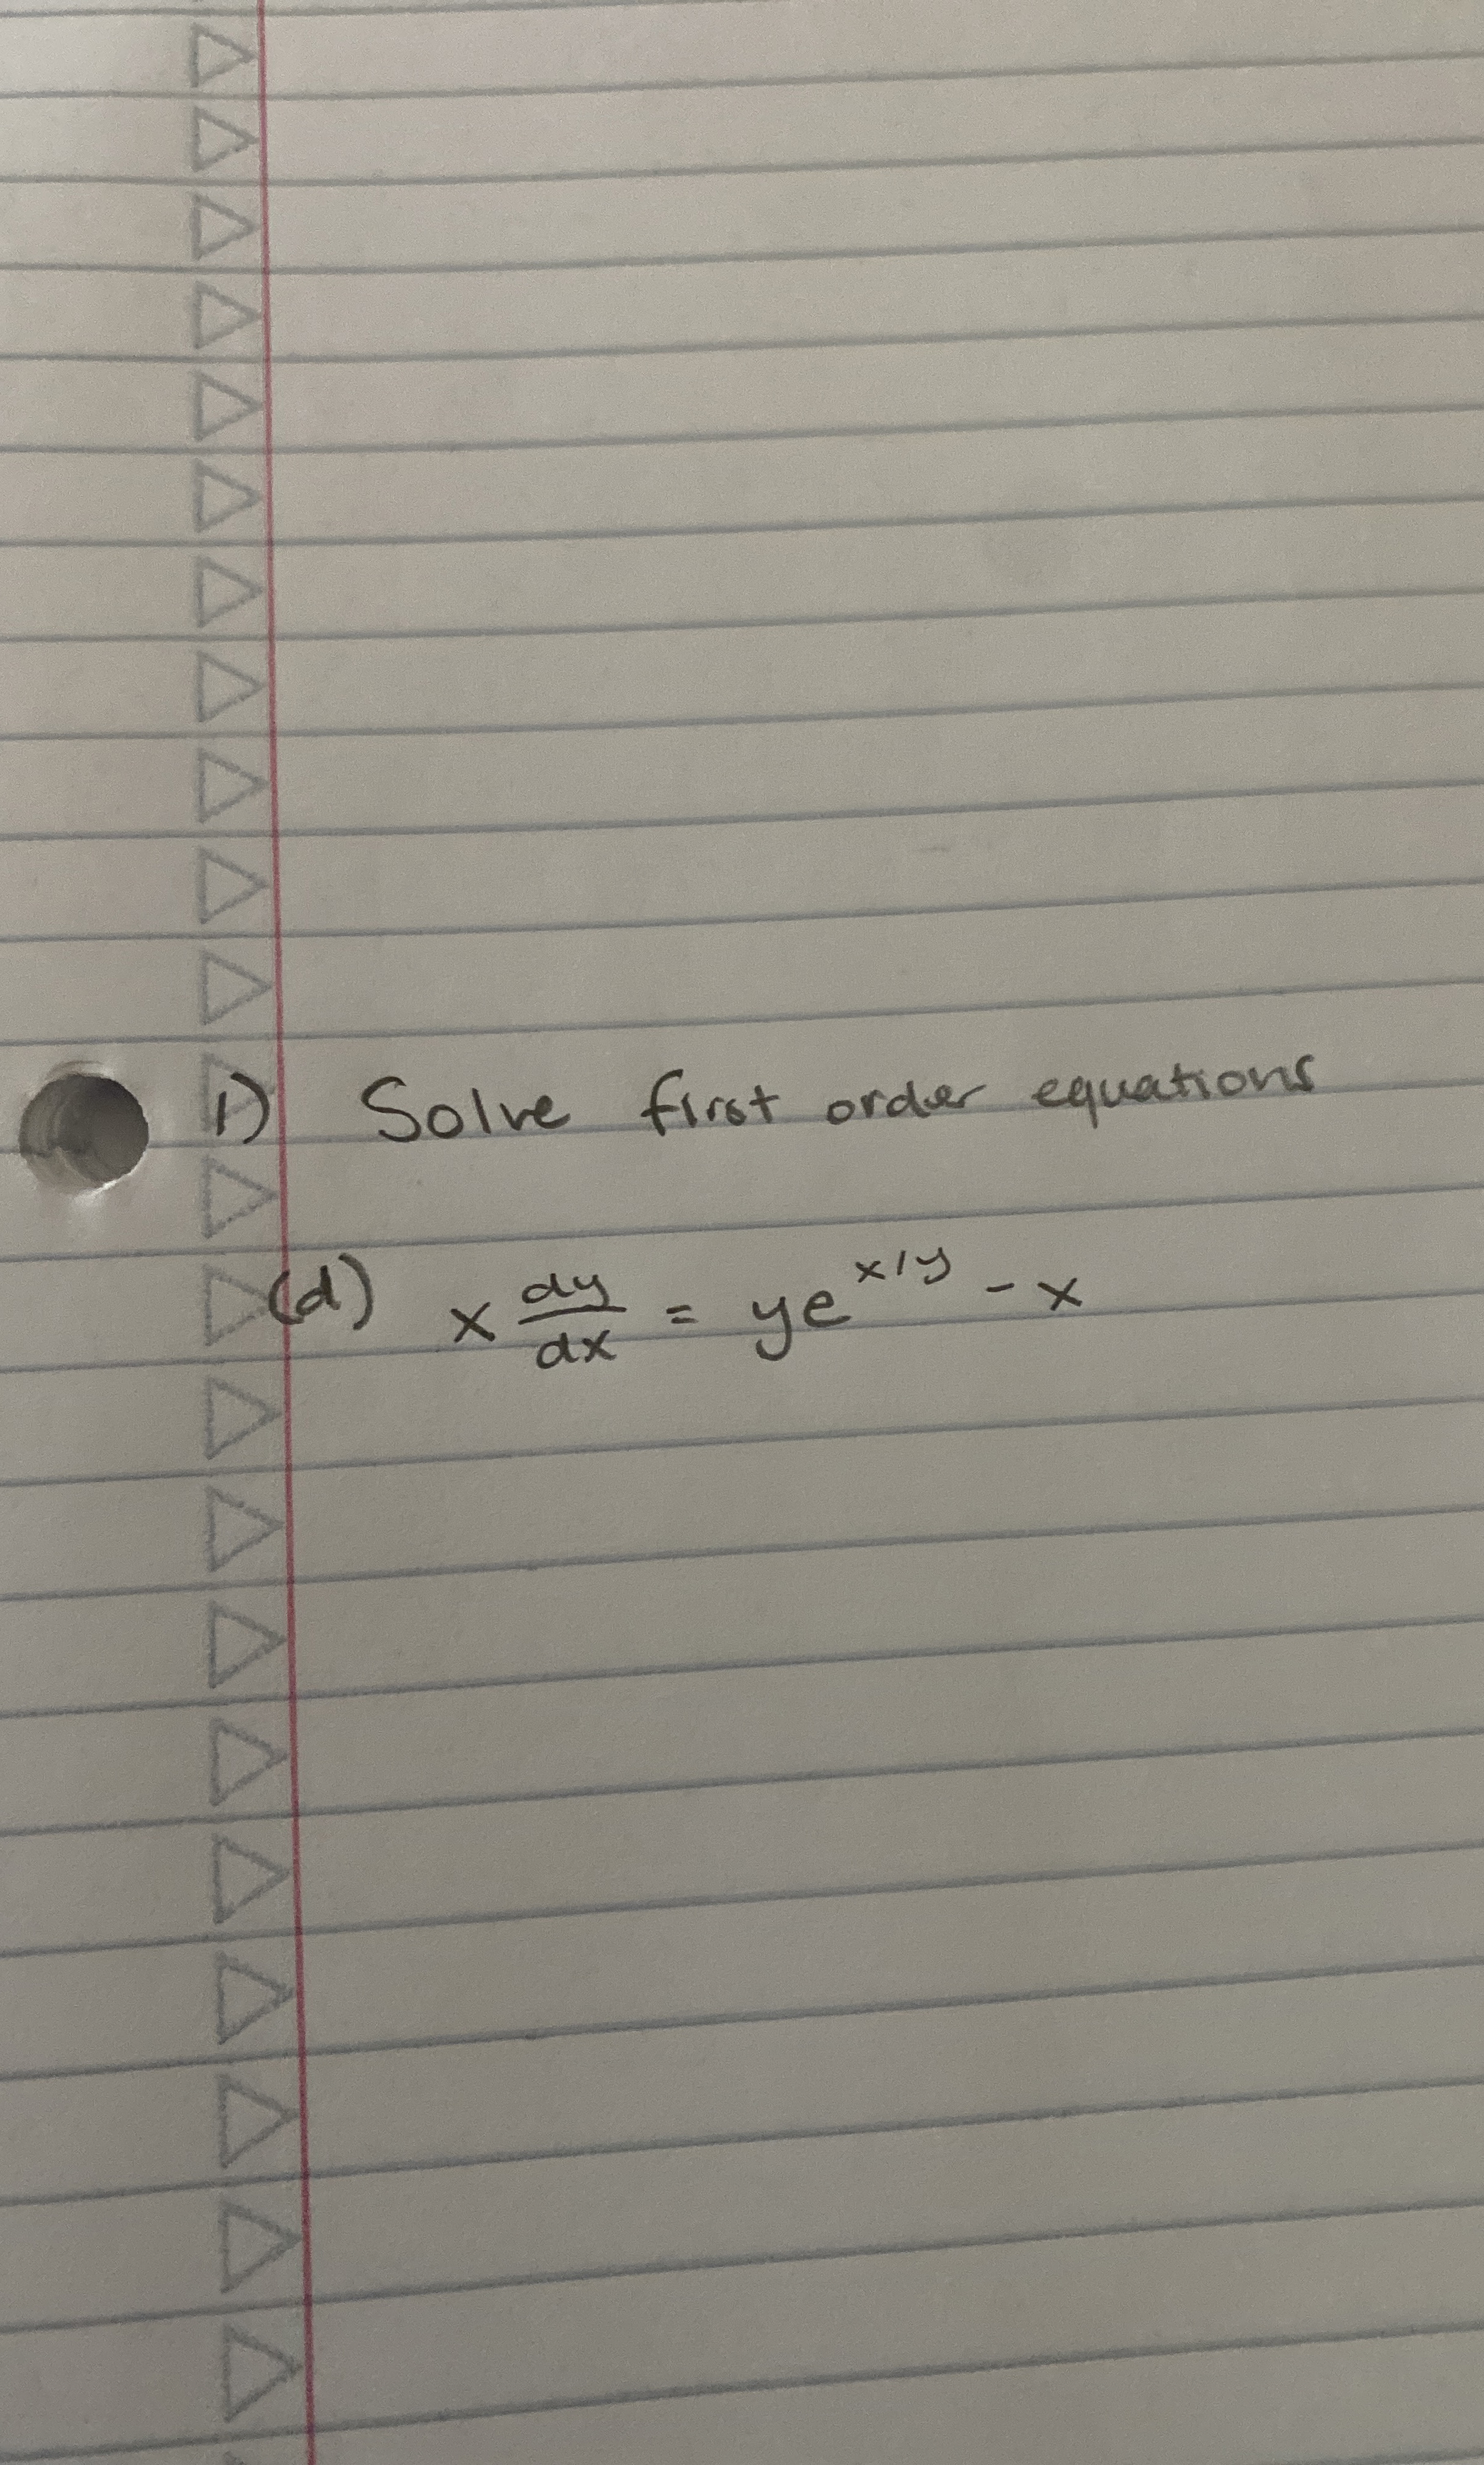 1) Solve first order equations
(d) x dy/dx = ye^{x/y} - x